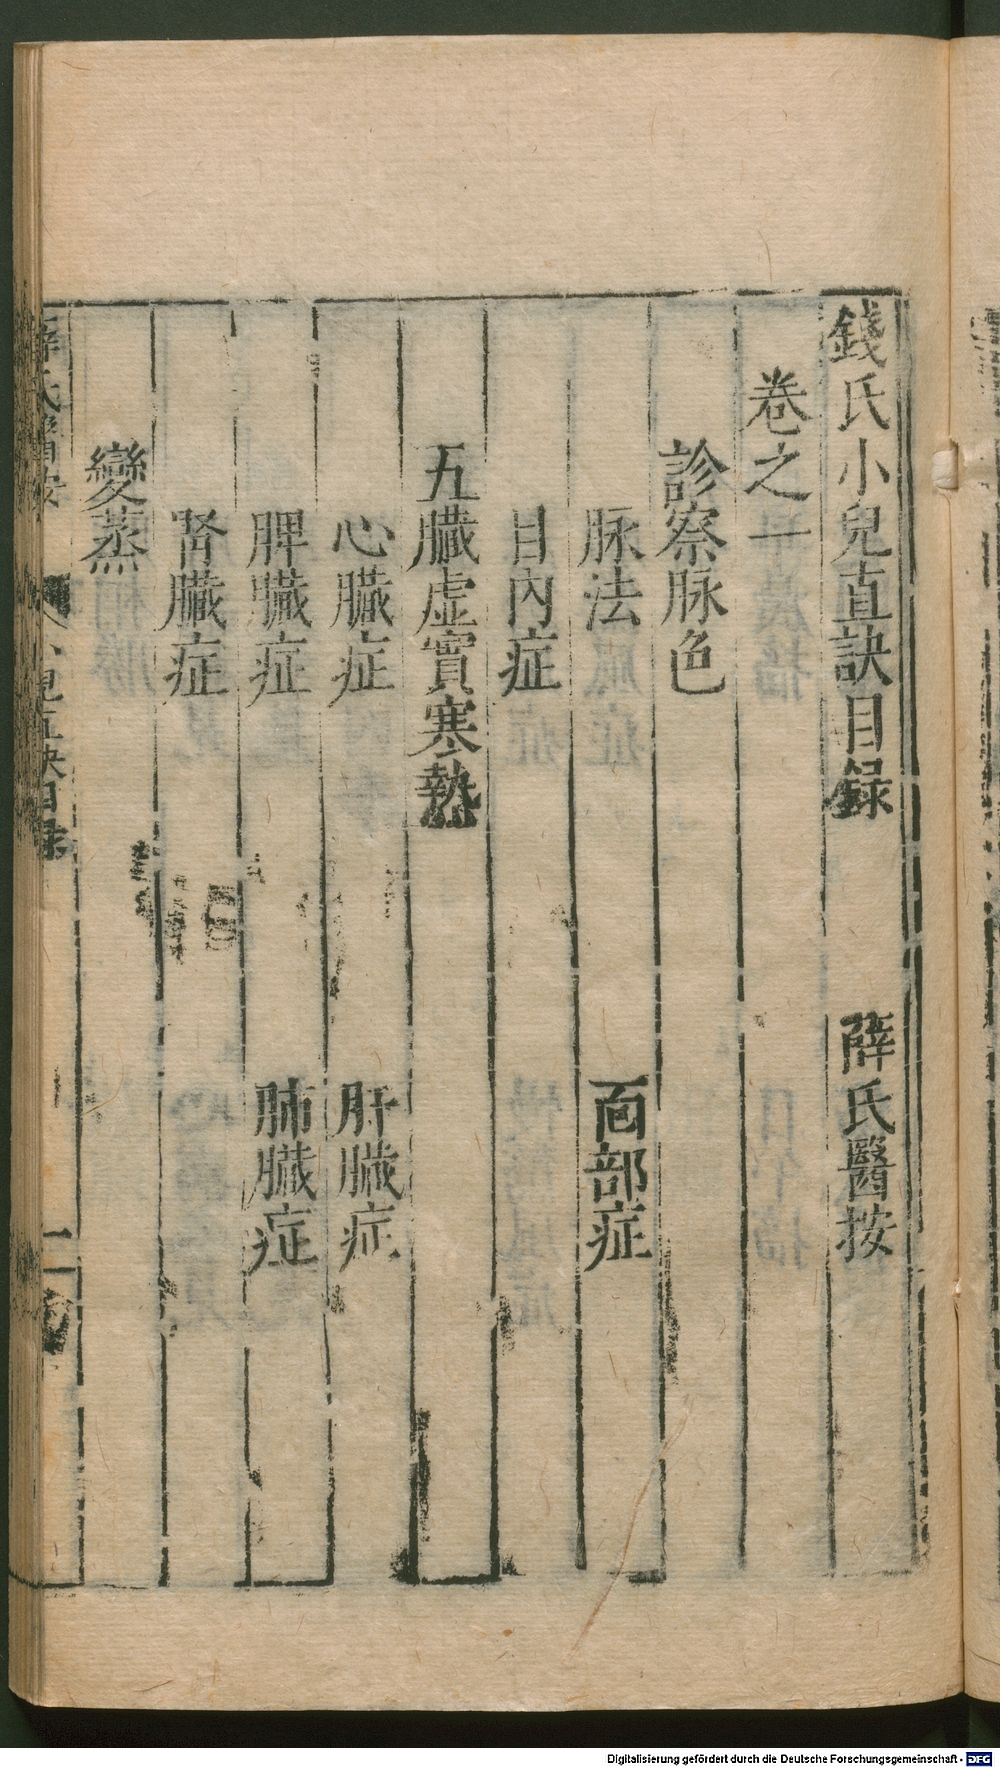 錢氏小兒直訣目録　薛氏醫按
卷之一
診察脉色
脉法　面部症
目內症
五臟虛實寒熱
心臟症　肝臟症
脾臟症　肺臟症
腎臟症
變蒸
薛氏醫按　小兒直訣目録　一
Digitalisierung gefördert durch die Deutsche Forschungsgemeinschaft - DFG